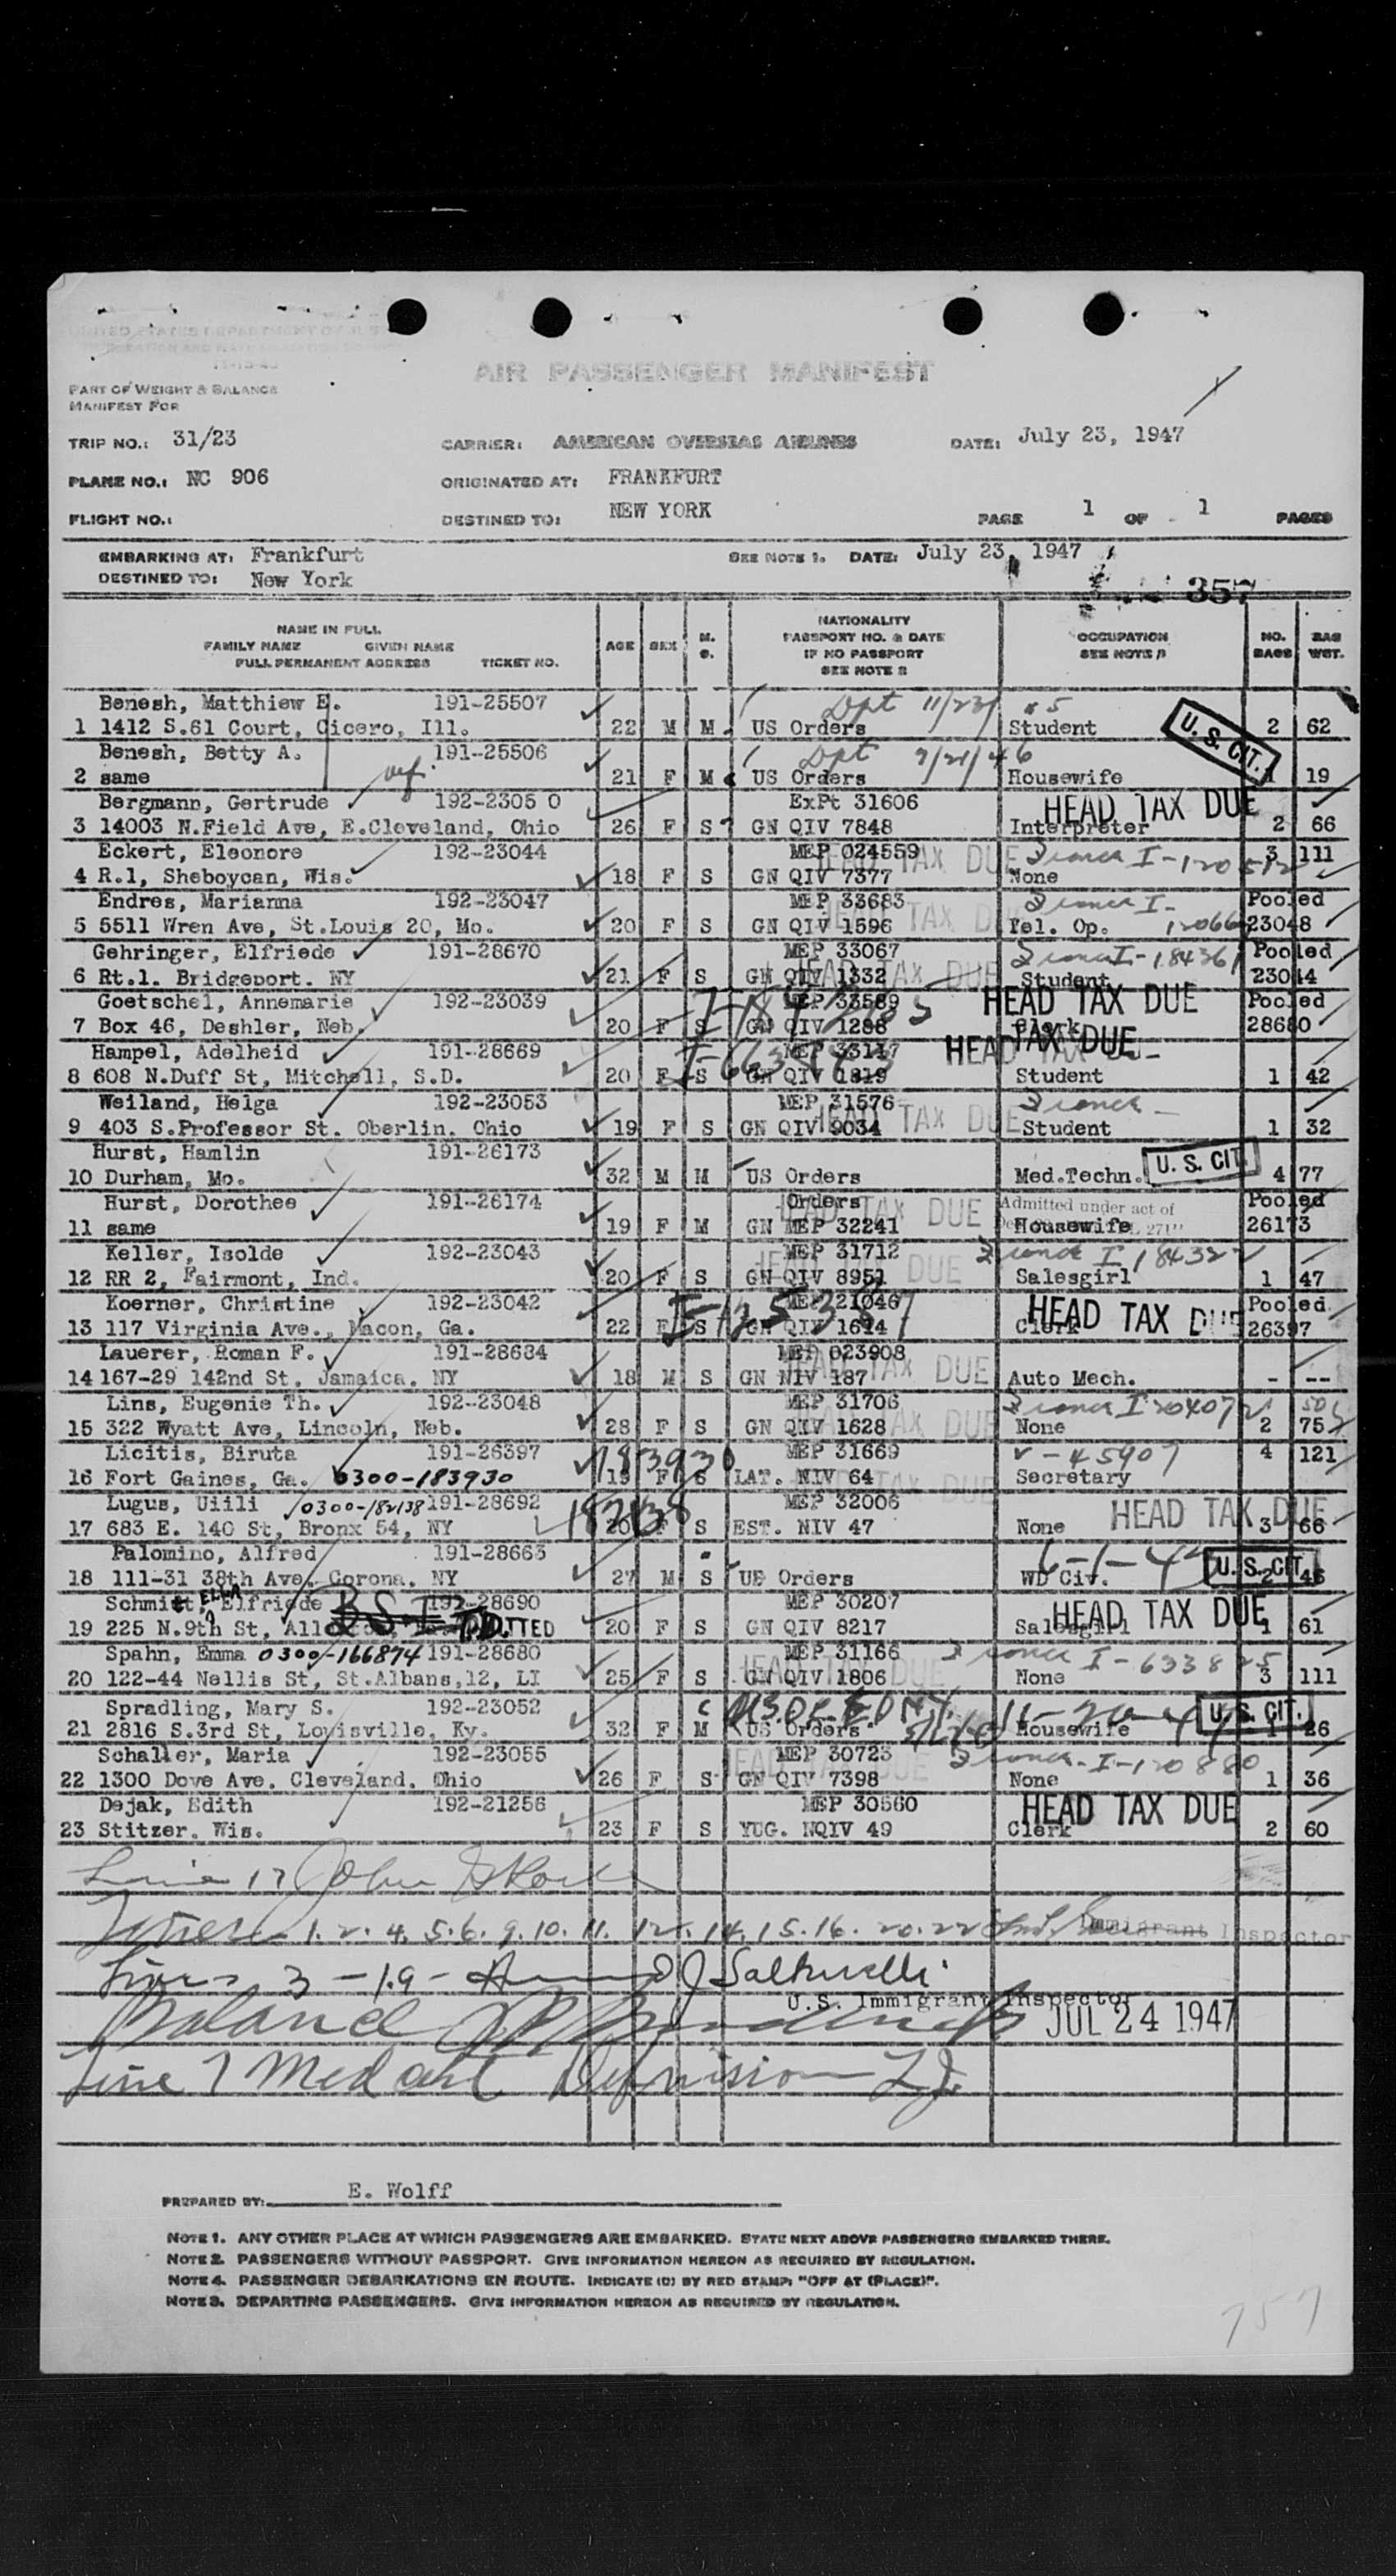 AIR PASSENGER MANIFEST
PART OF WEIGHT & BALANCE
MANIFEST FOR
TRIP NO.: 31/23 CARRIER: AMERICAN OVERSEAS AIRLINES DATE: July 23, 1947
PLANE NO.: NC 906 ORIGINATED AT: FRANKFURT
FLIGHT NO.: DESTINED TO: NEW YORK PAGE 1 OF 1 PAGES
EMBARKING AT: Frankfurt SEE NOTE 1. DATE: July 23, 1947
DESTINED TO: New York
357
NAME IN FULL
FAMILY NAME GIVEN NAME
FULL PERMANENT ADDRESS TICKET NO. AGE SEX M. S. NATIONALITY PASSPORT NO. & DATE IF NO PASSPORT SEE NOTE 2 OCCUPATION SEE NOTE 3 NO. BAGS BAG WGT.
Benesh, Matthiew E. 191-25507 Dpt 11/23/45
1 1412 S.61 Court, Cicero, Ill. 22 M M US Orders Student U. S. CIT. 2 62
Benesh, Betty A. 191-25506 Dpt 9/21/46
2 same 21 F M US Orders Housewife 1 19
Bergmann, Gertrude 192-2305 0 ExPt 31606 HEAD TAX DUE
3 14003 N.Field Ave, E.Cleveland, Ohio 26 F S GN QIV 7848 Interpreter 2 66
Eckert, Eleonore 192-23044 MEP 024559 HEAD TAX DUE I-120512 3 111
4 R.1, Sheboycan, Wis. 18 F S GN QIV 7377 None
Endres, Marianna 192-23047 MEP 33683 HEAD TAX DUE Pooled
5 5511 Wren Ave, St.Louis 20, Mo. 20 F S GN QIV 1596 Tel. Op. 23048
Gehringer, Elfriede 191-28670 MEP 33067 I-184361 Pooled
6 Rt.1. Bridgeport. NY 21 F S GN QIV 1332 HEAD TAX DUE Student 23044
Goetschel, Annemarie 192-23039 MEP 33589 HEAD TAX DUE Pooled
7 Box 46, Deshler, Neb. 20 F S GN QIV 1288 Clerk 28680
Hampel, Adelheid 191-28669 MEP 33117 HEAD TAX DUE
8 608 N.Duff St, Mitchell, S.D. 20 F S GN QIV 1819 Student 1 42
Weiland, Helga 192-23053 MEP 31576 HEAD TAX DUE
9 403 S.Professor St. Oberlin. Ohio 19 F S GN QIV 9034 Student 1 32
Hurst, Hamlin 191-26173
10 Durham, Mo. 32 M M US Orders Med.Techn. U. S. CIT. 4 77
Hurst, Dorothee 191-26174 Orders HEAD TAX DUE Admitted under act of Pooled
11 same 19 F M GN MEP 32241 Housewife 26173
Keller, Isolde 192-23043 MEP 31712 I 184322
12 RR 2, Fairmont, Ind. 20 F S GN QIV 8951 HEAD TAX DUE Salesgirl 1 47
Koerner, Christine 192-23042 MEP 21046 HEAD TAX DUE Pooled
13 117 Virginia Ave., Macon, Ga. 22 F S GN QIV 1614 Clerk 26397
Lauerer, Roman F. 191-28684 MEP 023908
14 167-29 142nd St. Jamaica. NY 18 M S GN NIV 187 HEAD TAX DUE Auto Mech. - --
Lins, Eugenie Th. 192-23048 MEP 31706
15 322 Wyatt Ave, Lincoln, Neb. 28 F S GN QIV 1628 HEAD TAX DUE None 2 75
Licitis, Biruta 191-26397 183930 MEP 31669 V-45907 4 121
16 Fort Gaines, Ga. 0300-183930 F S LAT. NIV 64 HEAD TAX DUE Secretary
Lugus, Uiili 0300-182138 191-28692 182138 MEP 32006 HEAD TAX DUE
17 683 E. 140 St, Bronx 54, NY 20 F S EST. NIV 47 None 3 66
Palomino, Alfred 191-28663
18 111-31 38th Ave. Corona. NY 27 M S US Orders WD Civ. U. S. CIT. 2 46
Schmitt, ELLA Elfriede 192-28690 MEP 30207 HEAD TAX DUE
19 225 N.9th St, B.S.I. ADMITTED 20 F S GN QIV 8217 Salesgirl 1 61
Spahn, Emma 0300-166874 191-28680 MEP 31166 I-633825
20 122-44 Nellis St, St.Albans,12, LI 25 F S GN QIV 1806 HEAD TAX DUE None 3 111
Spradling, Mary S. 192-23052 U. S. CIT.
21 2816 S.3rd St, Lovisville, Ky. 32 F M US Orders Housewife 1 26
Schaller, Maria 192-23055 MEP 30723 I-120880
22 1300 Dove Ave. Cleveland. Ohio 26 F S GN QIV 7398 HEAD TAX DUE None 1 36
Dejak, Edith 192-21256 MEP 30560 HEAD TAX DUE
23 Stitzer. Wis. 23 F S YUG. NQIV 49 Clerk 2 60
Line 17 John
Lines 1. 2. 4. 5. 6. 9. 10. 11. 12. 14. 15. 16. 20. 22 Immigrant Inspector
Lines 3 - 19 -
U.S. Immigrant Inspector
Balance JUL 24 1947
Line 7 Med
PREPARED BY: E. Wolff
NOTE 1. ANY OTHER PLACE AT WHICH PASSENGERS ARE EMBARKED. STATE NEXT ABOVE PASSENGERS EMBARKED THERE.
NOTE 2. PASSENGERS WITHOUT PASSPORT. GIVE INFORMATION HEREON AS REQUIRED BY REGULATION.
NOTE 4. PASSENGER DEBARKATIONS EN ROUTE. INDICATE (D) BY RED STAMP: "OFF AT (PLACE)".
NOTE 3. DEPARTING PASSENGERS. GIVE INFORMATION HEREON AS REQUIRED BY REGULATION.
757